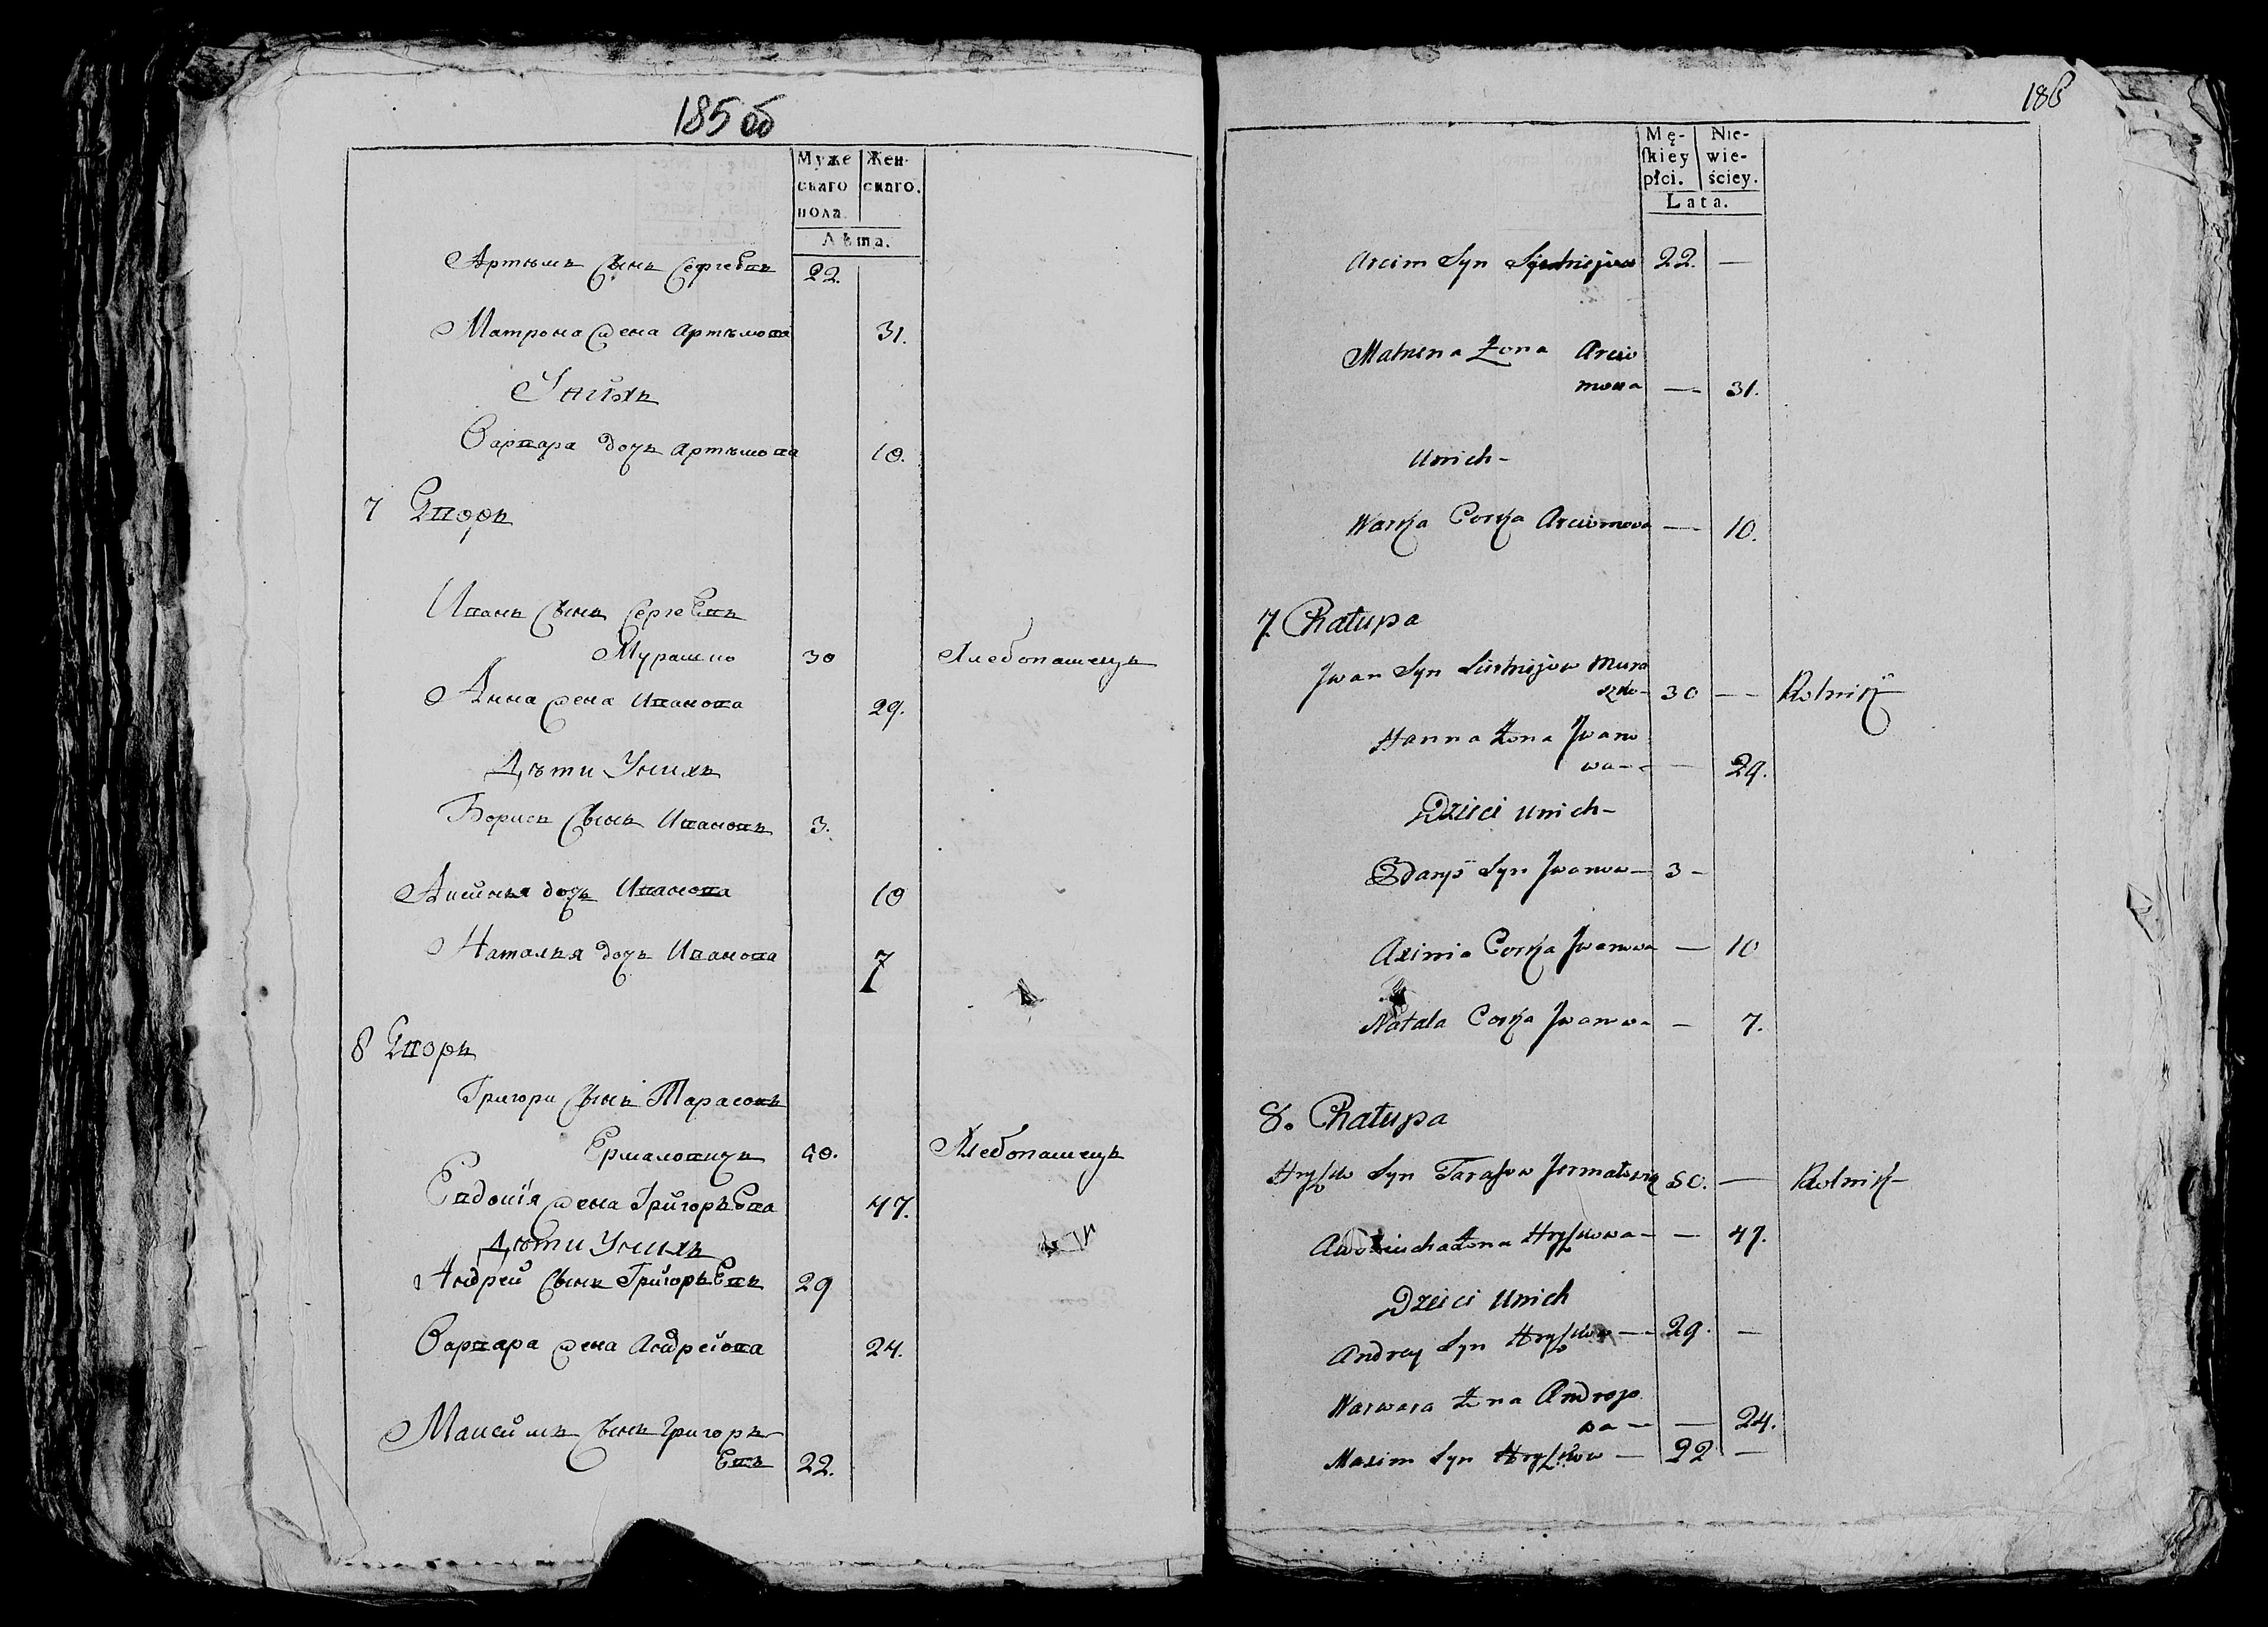 185 об
Муже
скаго
пола.
Жен-
скаго.
Лѣта.
Артѣмъ Сынъ Сергеевъ 22.
Матрона Жена Артѣмова 31.
У нихъ
Варвара дочь Артѣмова 10.
7 Дворъ
Иванъ Сынъ Сергеевъ
Мурашко 30 Хлебопашецъ
Анна Жена Иванова 29.
Дѣти У нихъ
Борисъ Сынъ Ивановъ 3.
Аксинья дочь Иванова 10
Наталья дочь Иванова 7
8 Дворъ
Григори Сынъ Тарасовъ
Ермаловичъ Хлебопашецъ
Евдокія Жена Григорьева 47.
Дѣти У нихъ
Андрей Сынъ Григорьевъ 29
Варвара Жена Андреева 24.
Максимъ Сынъ Григорь
евъ 22.
186
Mę-
ſkiey
płci.
Nie-
wie-
ściey.
Lata.
Arcim Syn 22. —
Matrena Żona Arcio
mowa — 31.
Unich -
Warka Corka Arciomowa — 10.
7. Chałupa
Jwan Syn Sierhiejow Mura
szko - 30 — Rolnik
Hanna Żona Jwano
wa — — 29.
Dzieci Unich -
Barys Syn Jwanow — 3 -
Axinia Corka Jwanowa — 10
Natala Corka Jwanowa — 7.
8. Chałupa
Hryſko Syn Taraſow Jermałowicz 50. — Rolnik
Żona Hryſkowa — — 47.
Dzieci Unich
Andrey Syn Hryſkow — 29. —
Warwara Żona Androjo
wa — — 24.
Maxim Syn Hryſkow — 22 —